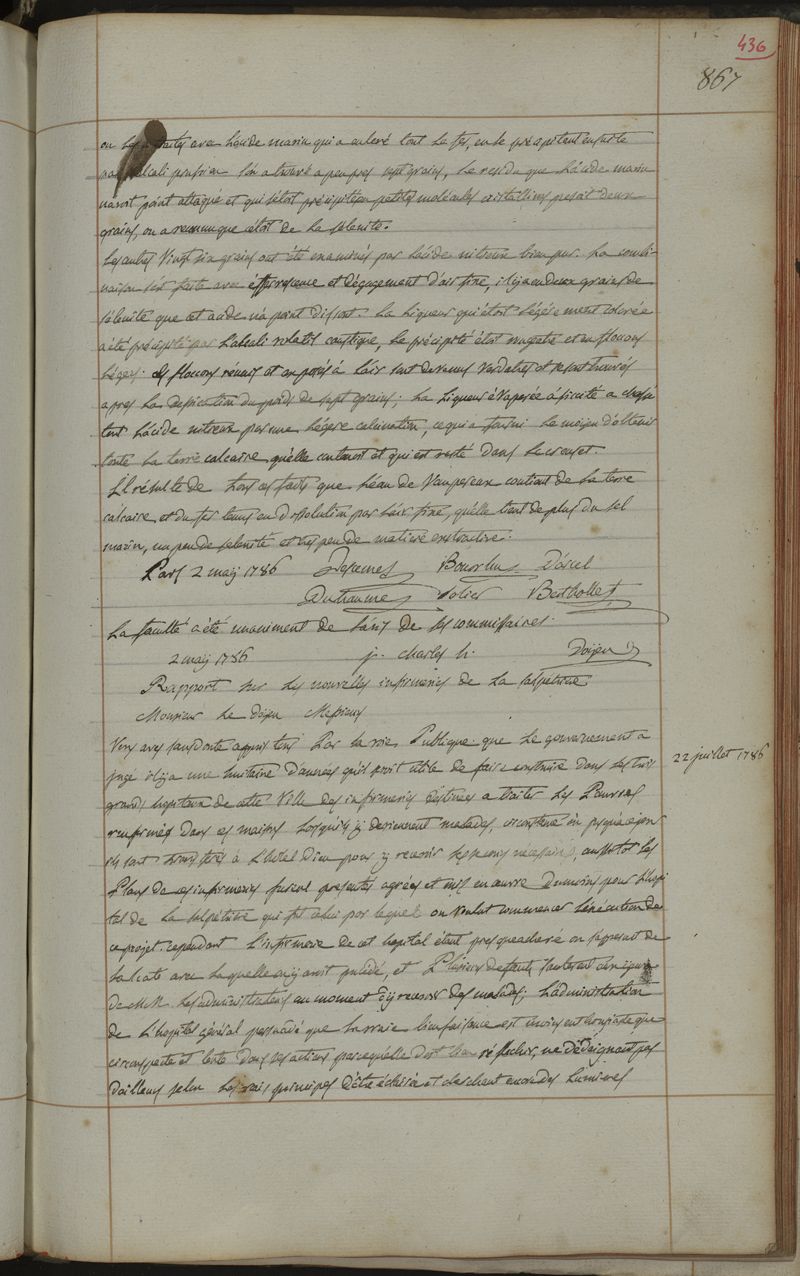 436
867
on les a traités avec l'acide marin qui a enlevé tout le fer, en le précipitant ensuite
par l'alcali prussien l'on a trouvé a peu pres sept grains, le residu que l'acide marin
n'avoit point attaqué et qui s'étoit précipité en petites molécules cristallines pesoit deux
grains, on a reconnu que c'étoit de la sélénite.
Les autres vingt six grains ont été examinés par l'acide nitreux bien pur. La combi-
naison s'est faite avec éffervescence et dégagement d'air fixe, il y a eu deux grains de
sélénite que cet acide n'a point dissout. La liqueur qui étoit légérement colorée
a été précipité par l'alkali volatil caustique, le précipité étoit rougeatre et en flocons
légers. Ces flocons réunis et exposés à l'air sont devenus verdatres et se sont trouvés
apres la dessication du poids de sept grains; la liqueur évaporée à siccité a chassé
tout l'acide nitreux par une légere calcination, ce qui a fourni le moyen d'obtenir
toute la terre calcaire qu'elle contenoit et qui est resté dans le creuset.
Il résulte de tous ces faits que l'eau de Vaugeseau contient de la terre
calcaire, et du fer tenus en dissolution par l'air fixe, qu'elle tient de plus du sel
marin, un peu de selenité et tres peu de matiere extractive.
Paris 2 may 1786 Desemet Bourdlin D'arcel
Duhaume Solier Berthollet
La faculté a été unaniment de l'avis de ses commissaires.
2 may 1786 j. charles h. Doyen
Rapport sur les nouvelles infirmeries de la salpetriere
Monsieur le Doyen Messieurs
Vous avez sans doute appris tous par la voie Publique que le gouvernement a
22 juillet 1786
jugé il y a une huitaine d'années qu'il seroit utile de faire construire dans les trois
grands hopitaux de cette Ville des infirmeries destinées a traiter les Pauvres
renfermés dans ces maisons lorsqu'ils y deviennent malades, circonstance où jusqu'a ce jour
ils sont transférés à l'hotel Dieu pour y recevoir les secours nécessaires, aussitot les
Plans de ces infirmeries furent presentés agréés et mis en œuvre Du moins pour l'hopi
tal de la salpétriere qui fut celui par lequel on voulut commencer l'éxécution de
ce projet. cependant l'infirmerie de cet hopital étant presque achevé on s'apperçut de
la hate avec laquelle on y avoit procédé, et Plusieurs defauts sauterent aux yeux
de MM. les administrateurs au moment d'y recevoir des malades; l'administration
de l'hopital général persuadé que la vraie bienfaisance est moins enthousiaste que
circonspecte et lente dans ses actions parcequ'elle doit bien réflechir, ne dédeignant pas
d'ailleurs selon les vrais principes d'être éclairée et cherchant encor des lumieres